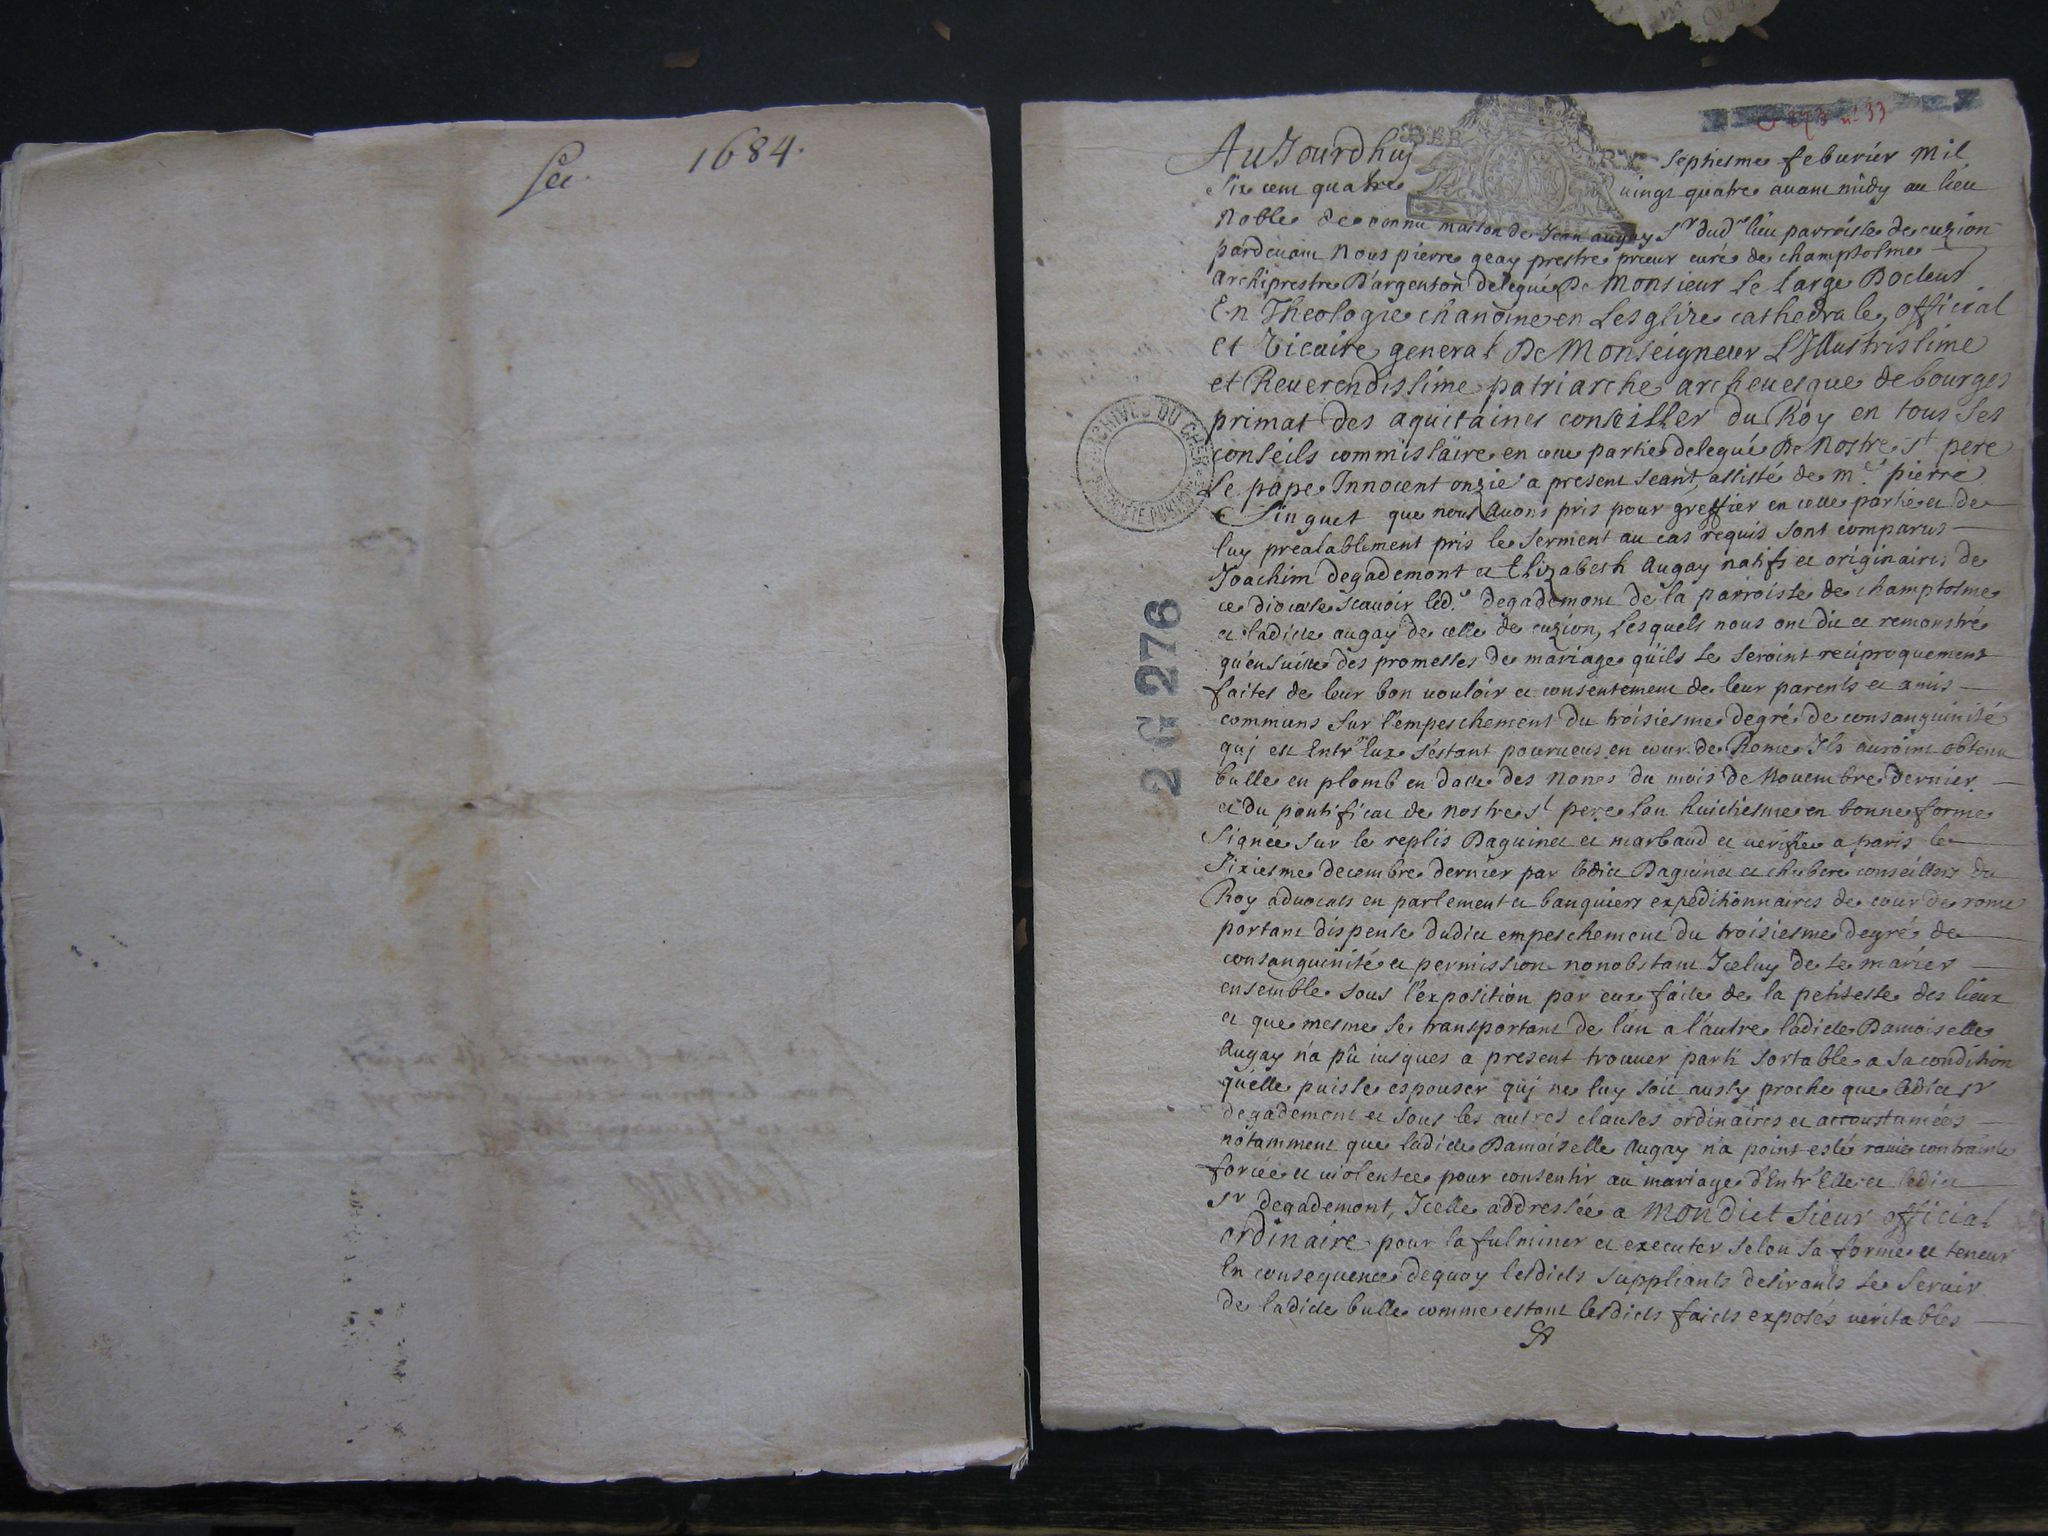 1684.
BER RY
G 273 n° 33
AuJourdhuy septiesme feburier mil
six cent quatre uingt quatre auant midy au lieu
noble de connu maison de Jean augay Sr dudt lieu parroisse de cuzion
pardeuant Nous pierre geay prestre prieur curé de champtolme
archiprestre D'argenton delegué De Monsieur Le Large Docteur
En Theologie chanoine en Lesglize cathedrale, official
et Vicaire general De Monseigneur L'Illustrissime
et Reuerendissime patriarche archeuesque de bourges
primat des aquitaines conseiller du Roy en tous ses
conseils commissaire en cette partie delegué De Nostre St pere
Le pape Innocent onzie a present seant, assisté de me pierre
Singuet que nous auons pris pour greffier en cette partie et de
luy prealablement pris le serment au cas requis sont comparus
Joachim degademont et Elizabeth Augay natifs et originaires de
ce diocese scauoir led. degademont de la parroisse de champtolme
et ladicte augay de celle de cuzion, Lesquels nous ont dit et remonstré
qu'ensuitte des promesses de mariage qu'ils se seroint reciproquement
faites de leur bon uouloir et consentement de leur parents et amis
communs sur l'empeschement du troisiesme degré de consanguinité
quj est Entr'eux s'estant pourueus en cour de Rome Ils auroint obtenu
bulle en plomb en datte des nones du mois de Nouembre dernier
et du pontificat de nostre St pere l'an huictiesme en bonne forme
Signée sur le replis Daguinet et marbaud et uerifiée a paris le
sixiesme decembre dernier par ledict Daguinet et chubere conseillers du
Roy aduocats en parlement et banquiers expeditionnaires de cour de rome
portant dispense dudict empeschement du troisiesme degré de
consanguinité et permission nonobstant Iceluy de se marier
ensemble sous l'exposition par eux faite de la petitesse des lieux
et que mesme se transportant de l'un a l'autre ladicte Damoiselle
Augay n'a pû iusques a present trouuer parti sortable a sa condition
qu'elle puisse espouser quj ne luy soit aussy proche que ledict sr
degademont et sous les autres clauses ordinaires et accoustumées
notamment que ladicte Damoiselle Augay n'a point esté rauie contrainte
forcée et uiolentée pour consentir au mariage d'Entr'Elle et ledict
sr degademont, Icelle addressée a Mondict Sieur official
ordinaire pour la fulminer et executer selon sa forme et teneur
En consequence dequoy lesdicts suppliants desirants se seruir
de ladicte bulle comme estant lesdicts faicts exposés ueritables
ARCHIVES DU CHER
2 G 276